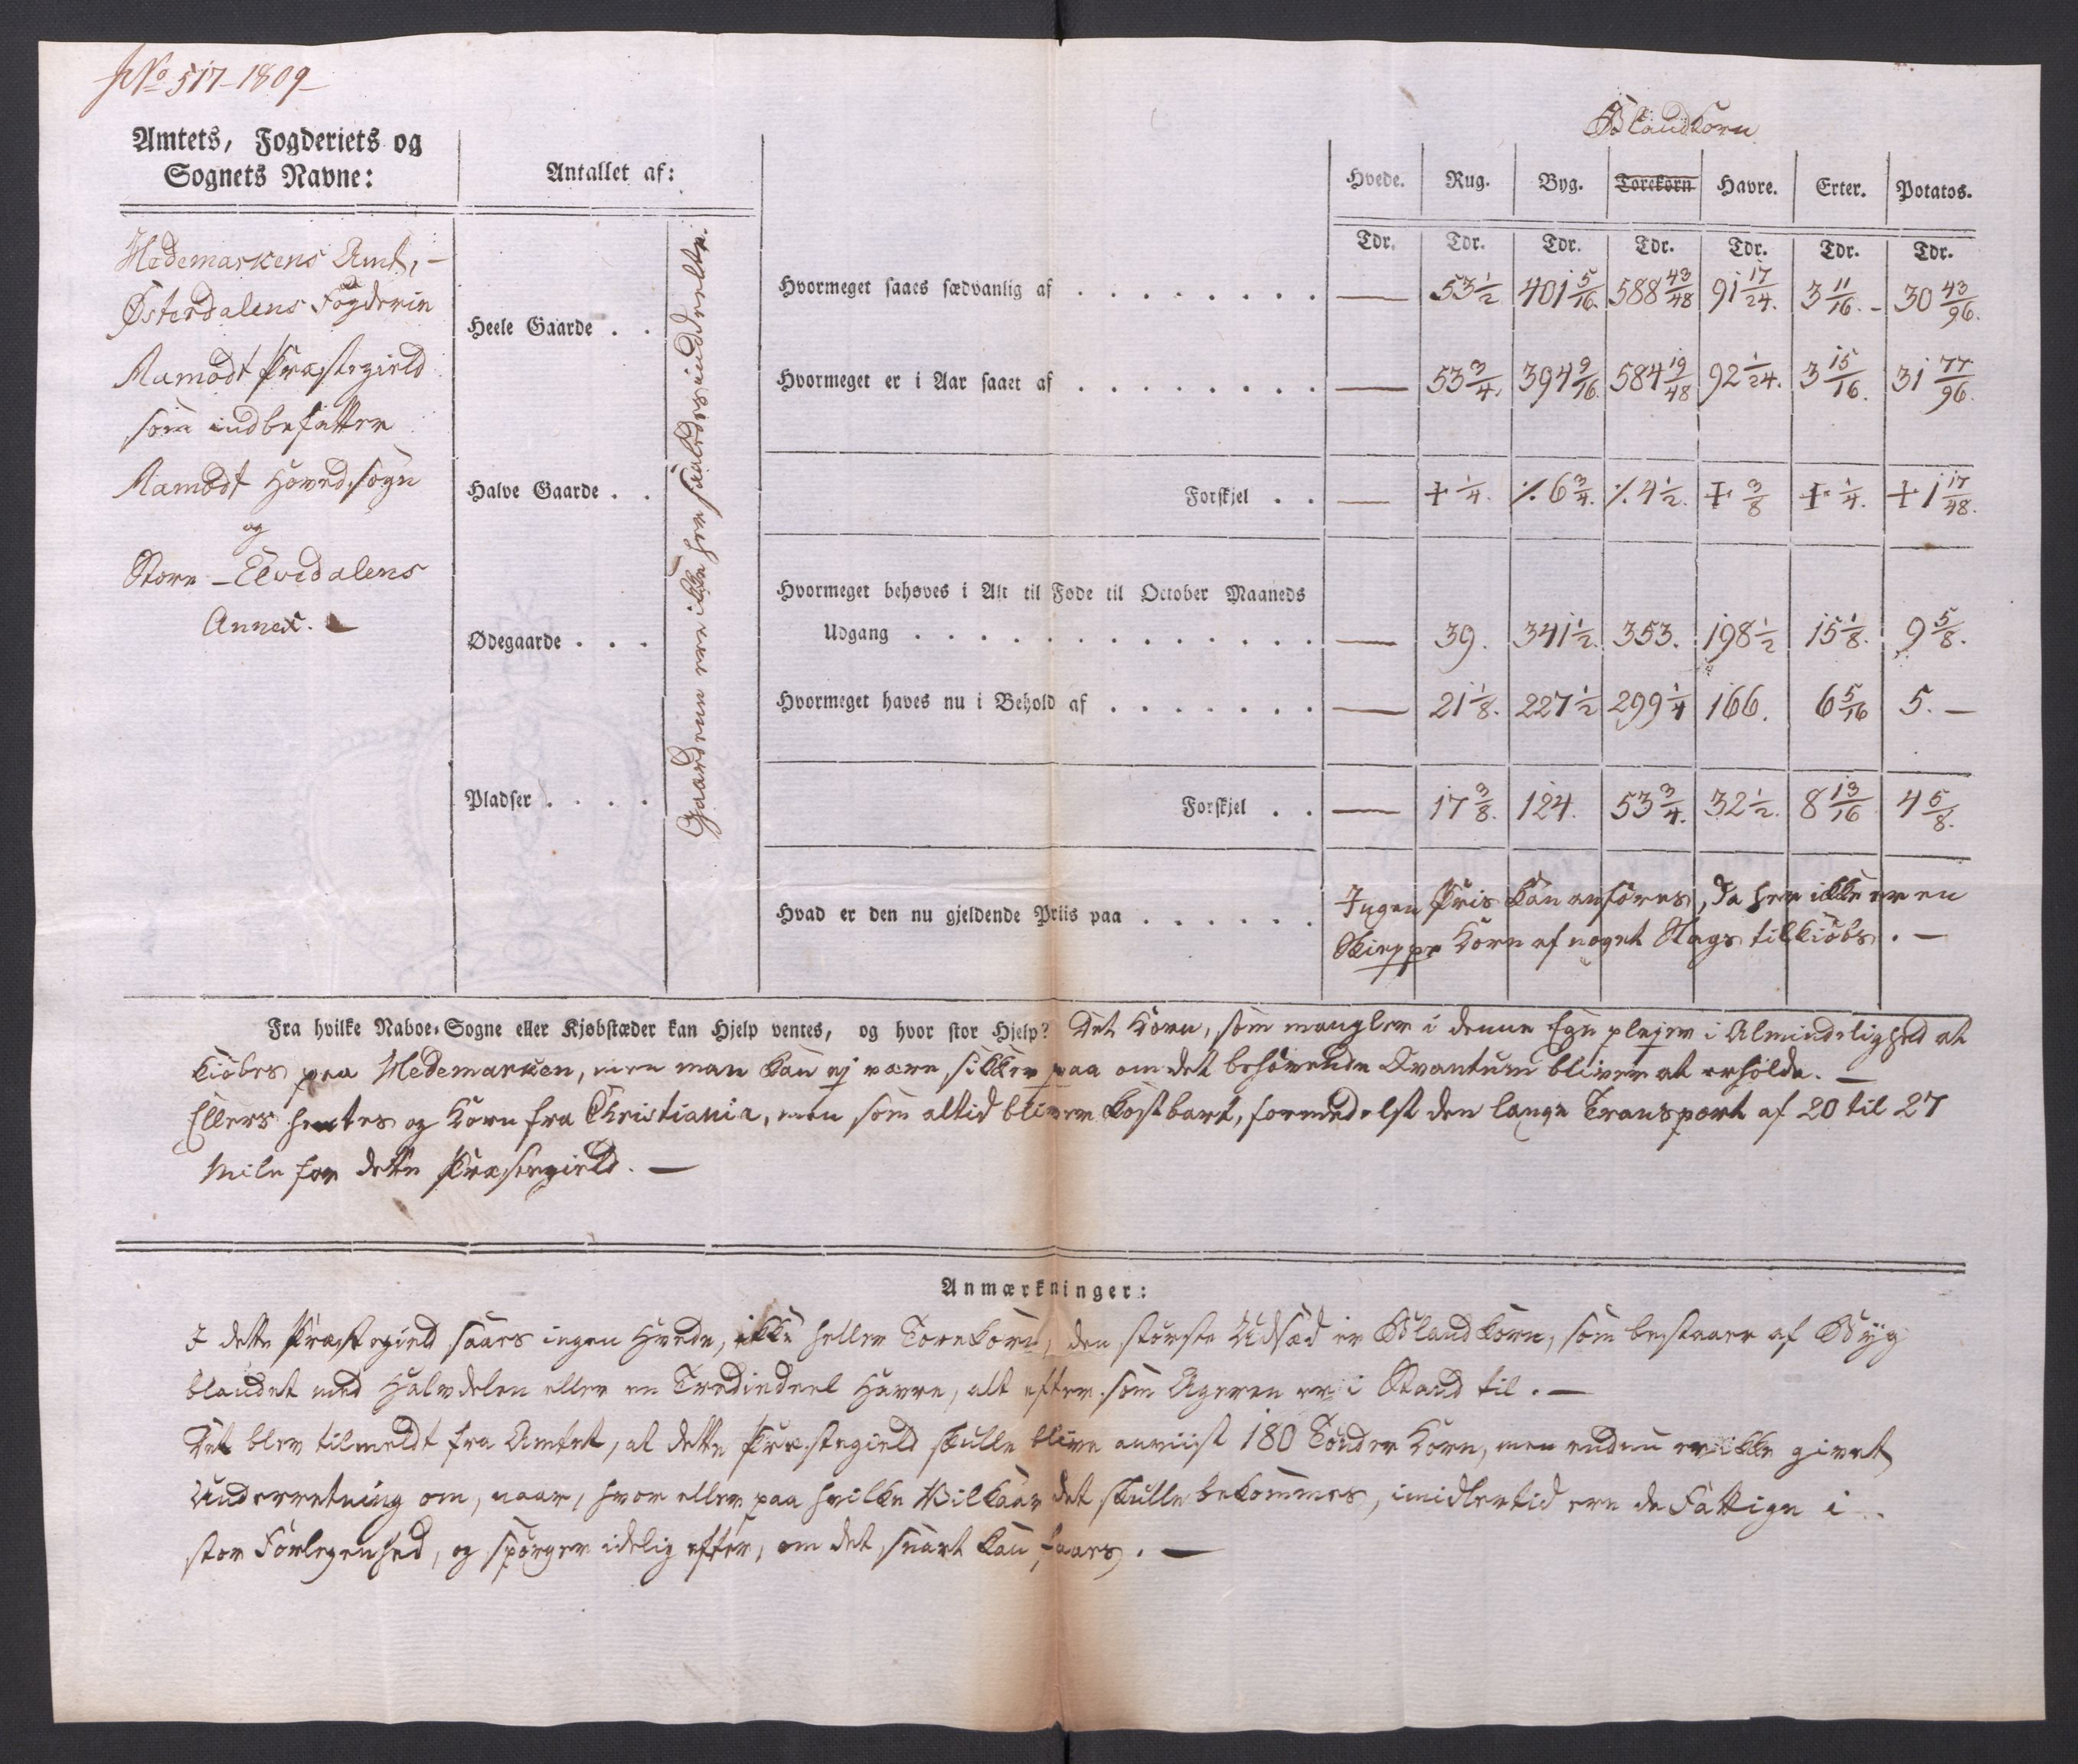 No 517-1809
Amtets, Fogderiets og
Sognets Navne:
Antallet af:
Blandkorn
Hvede. Rug. Byg. Torekorn Havre. Erter. Potatos.
Tdr. Tdr. Tdr. Tdr. Tdr. Tdr. Tdr.
Hedemarkens Amt, -
Østerdalens Fogderie
Aamodt Præstegield
som indbefatter
Aamodt Hoved sogn
og
Store-Elvedalens
Annex.
Heele Gaarde . .
Halve Gaarde . .
Ødegaarde . . .
Pladser . . . .
Gaardene ere ikke her saaledes inddeelte.
Hvormeget saaes sædvanlig af . . . . . . . . — 53 1/2 401 5/16. 588 43/48 91 17/24. 3 11/16. - 30 43/96.
Hvormeget er i Aar saaet af . . . . . . . . — 53 3/4. 394 9/16. 584 19/48 92 1/24. 3 15/16. 31 77/96.
Forskjel . . — + 1/4. ٪ 6 3/4. ٪ 4 1/2. + 3/8 + 1/4. + 1 17/48.
Hvormeget behøves i Alt til Føde til October Maaneds
Udgang . . . . . . . . . . . . . — 39. 341 1/2. 353. 198 1/2 15 1/8. 9 5/8.
Hvormeget haves nu i Behold af . . . . . . . — 21 1/8. 227 1/2 299 1/4 166. 6 5/16 5. —
Forskjel . . — 17 3/8. 124. 53 3/4. 32 1/2. 8 13/16 4 5/8.
Hvad er den nu gjeldende Priis paa . . . . . . Ingen Pris kan anføres, da her ikke er en
Skieppe Korn af noget Slags tilkiøbs. —
Fra hvilke Naboe-Sogne eller Kjøbstæder kan Hjelp ventes, og hvor stor Hjelp? Det Korn, som mangler i denne Egn plejer i Almindelighed at
kiøbes paa Hedemarken, men man kan ej være sikker paa om det behøvende Qvantum bliver at erholde. —
Ellers hentes og Korn fra Christiania, men som altid bliver kostbart, formedelst den lange Transport af 20 til 27
Mile for dette Præstegield. —
Anmærkninger:
I dette Præstegield saaes ingen Hvede, ikke heller Torekorn, den største Udsæd er Blandkorn, som bestaaer af Byg
blandet med Halvdelen eller en Trediedeel Havre, alt efter som Ageren er i Stand til. —
Det blev tilmeldt fra Amtet, at dette Præstegield skulle blive anviist 180 Tønder Korn, men endnu er ikke givet
Underretning om, naar, hvor eller paa hvilke Vilkaar det skulle bekommes, imidlertid ere de Fattige i
stor Forlegenhed, og spørger idelig efter, om det snart kan faaes. —